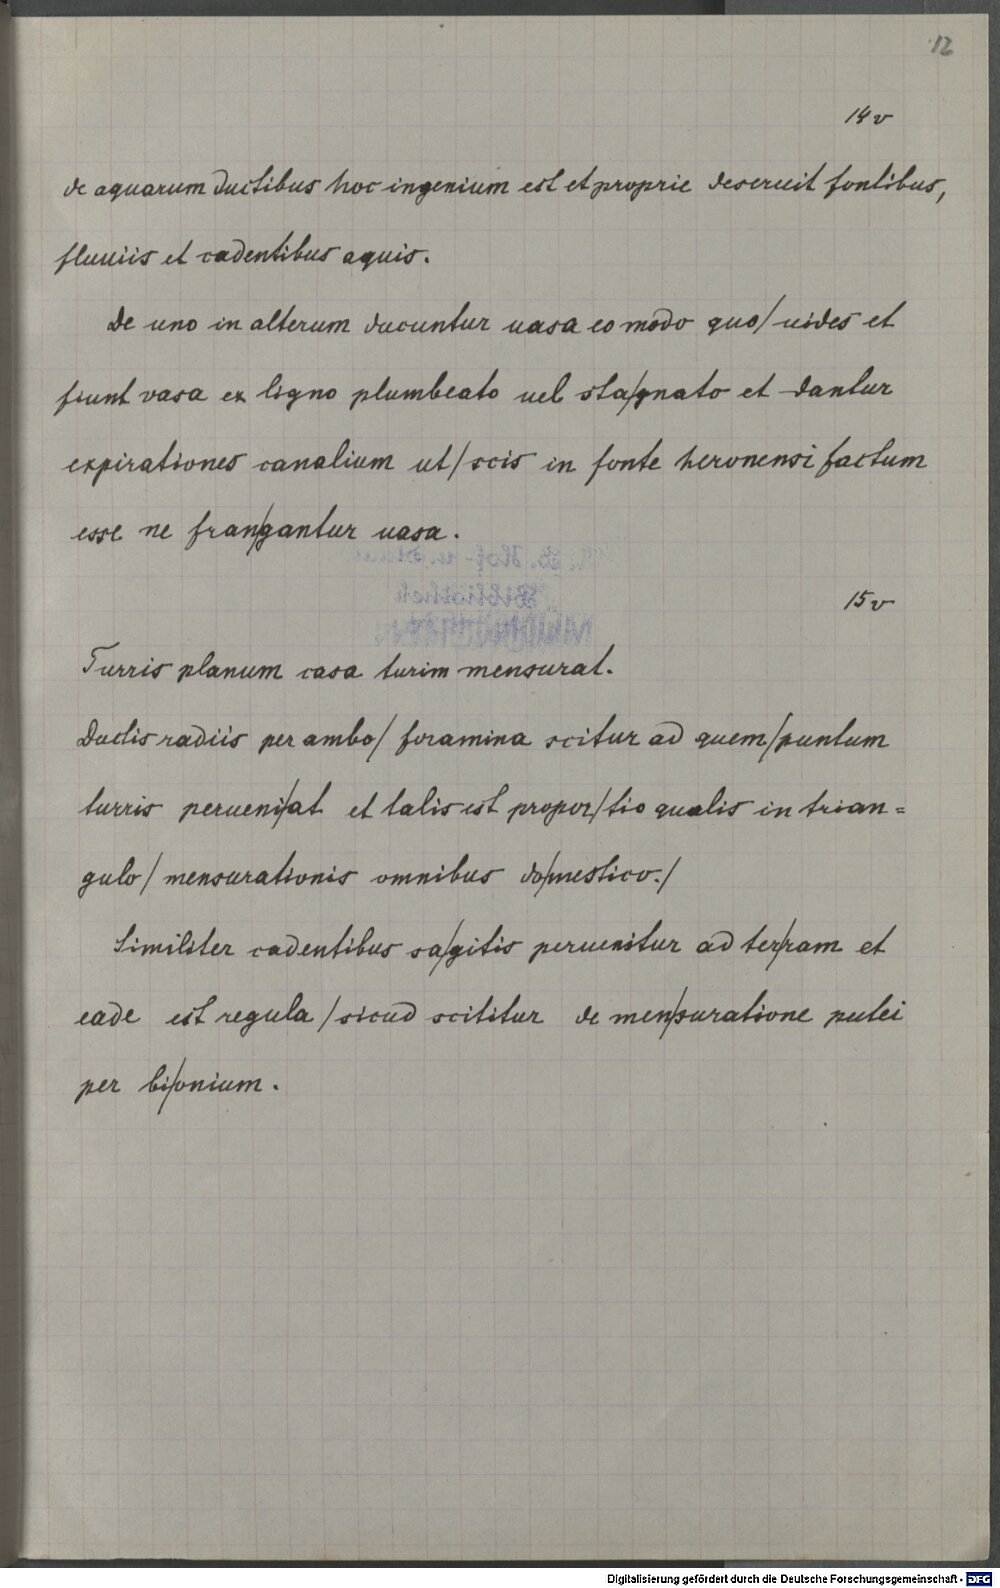 12
14 v
de aquarum ductibus hoc ingenium est et proprie deseruit fontibus,
fluuiis et cadentibus aquis.
De uno in alterum ducuntur uasa eo modo quo/ uides et
fiunt vasa ex ligno plumbeato uel sta/gnato et dantur
expirationes canalium ut/ scis in fonte heronensi factum
esse ne fran/gantur uasa.
15 v
Turris planum casa turim mensurat.
Ductis radiis per ambo/ foramina scitur ad quem/puntum
turris perueni/at et talis est propor/tio qualis in trian=
gulo/ mensurationis omnibus do/mestico./
Similiter cadentibus sa/gitis peruenitur ad ter/ram et
eade est regula /sicud scititur de men/suratione putei
per bi/onium.
Bibliothek
MÜNCHEN
Digitalisierung gefördert durch die Deutsche Forschungsgemeinschaft - DFG